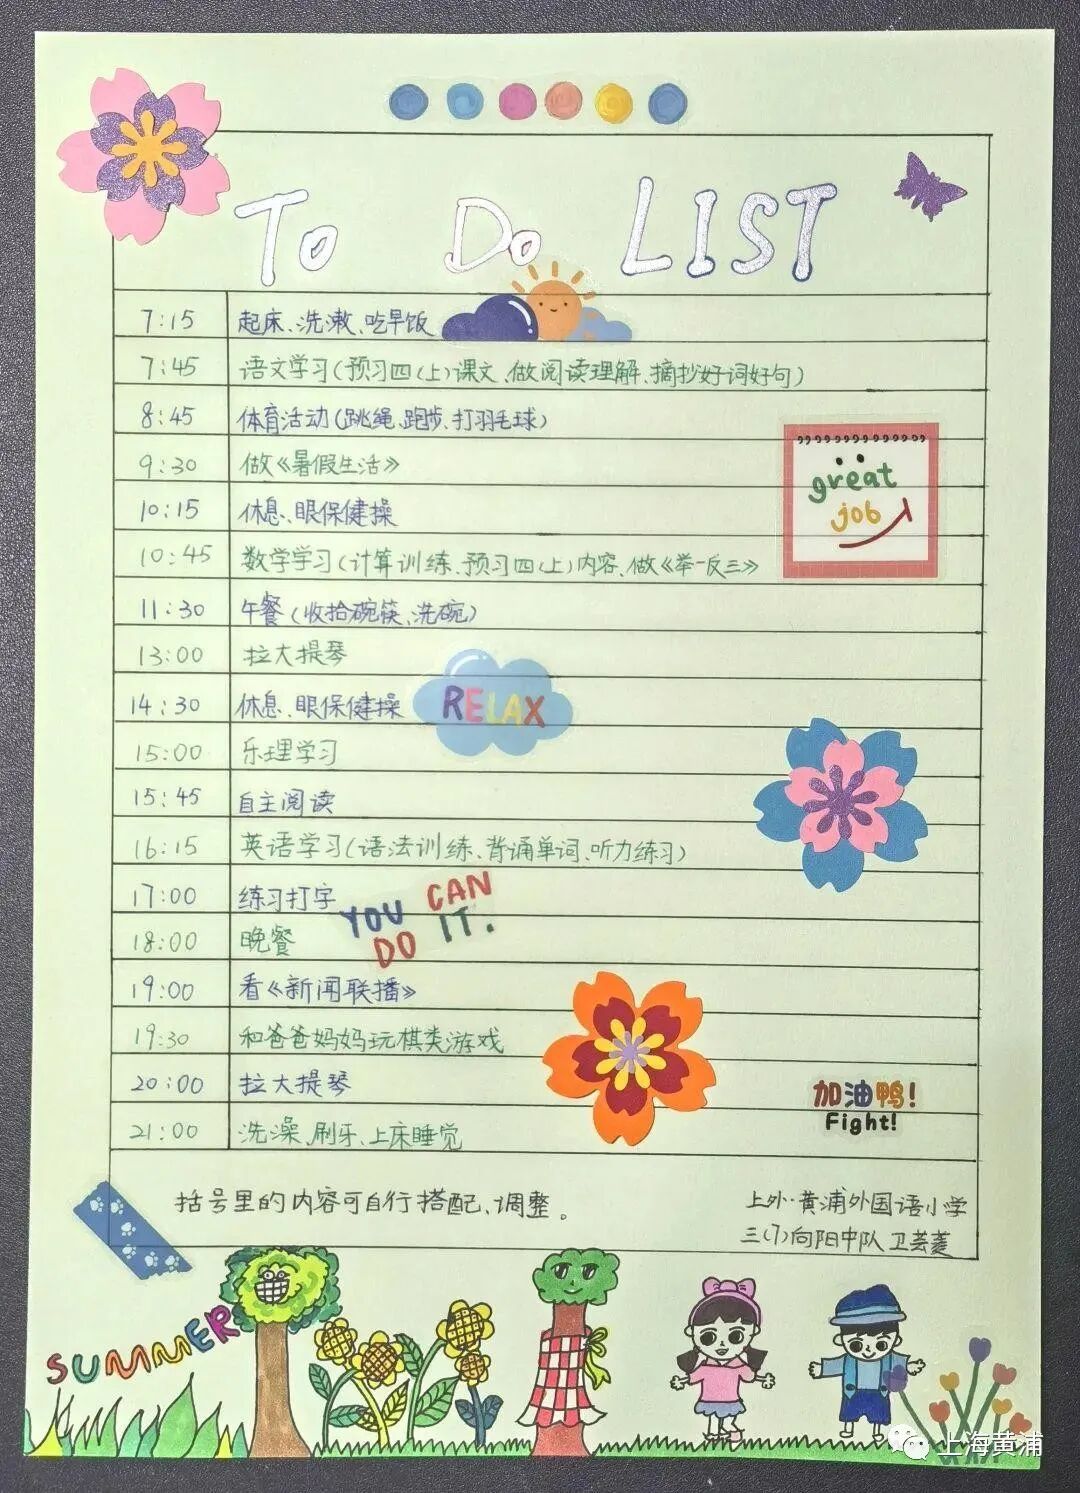 To Do LIST
7:15 起床、洗漱、吃早饭
7:45 语文学习(预习四(上)课文、做阅读理解、摘抄好词好句)
8:45 体育活动(跳绳、跑步、打羽毛球)
9:30 做《暑假生活》
great
job
10:15 休息、眼保健操
10:45 数学学习(计算训练、预习四(上)内容、做《举一反三》
11:30 午餐(收拾碗筷、洗碗)
13:00 拉大提琴
14:30 休息、眼保健操
RELAX
15:00 乐理学习
15:45 自主阅读
16:15 英语学习(语法训练、背诵单词、听力练习)
17:00 练习打字
YOU CAN
DO IT.
18:00 晚餐
19:00 看《新闻联播》
19:30 和爸爸妈妈玩棋类游戏
20:00 拉大提琴
加油鸭!
Fight!
21:00 洗澡、刷牙、上床睡觉
括号里的内容可自行搭配、调整。
上外·黄浦外国语小学
三(7)向阳中队 卫芸菱
SUMMER
上海黄浦